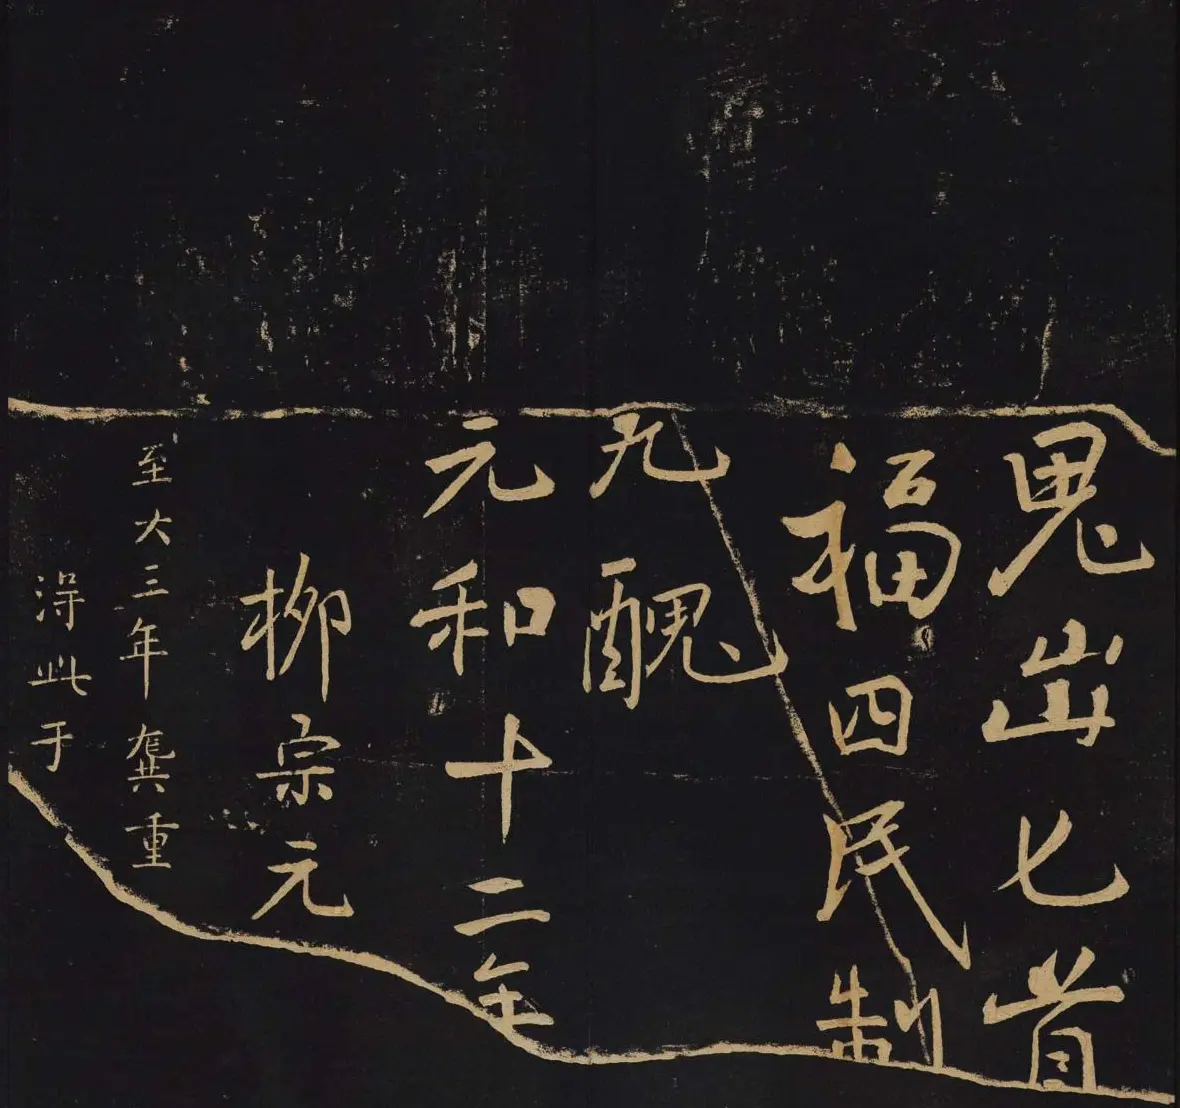 鬼出七首
福四民制
九醜
元和十二年
柳宗元
至大三年龔重
得此于